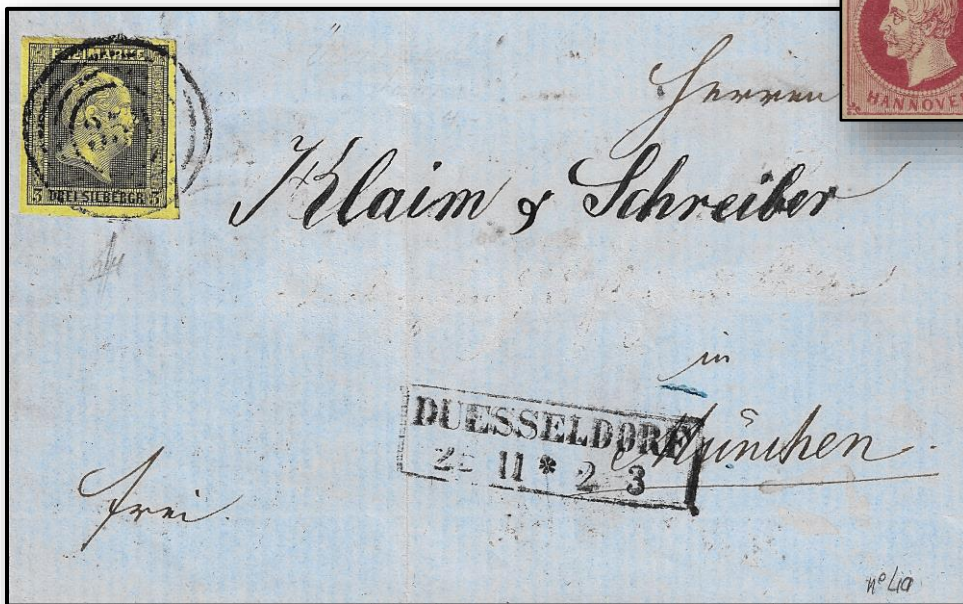 FREIMARKE
3 DREI SILBERGR. 3
HANNOVER
Herren
Klaim & Schreiber
in
München.
DUESSELDORF
11 * 2 3
frei
no 4a